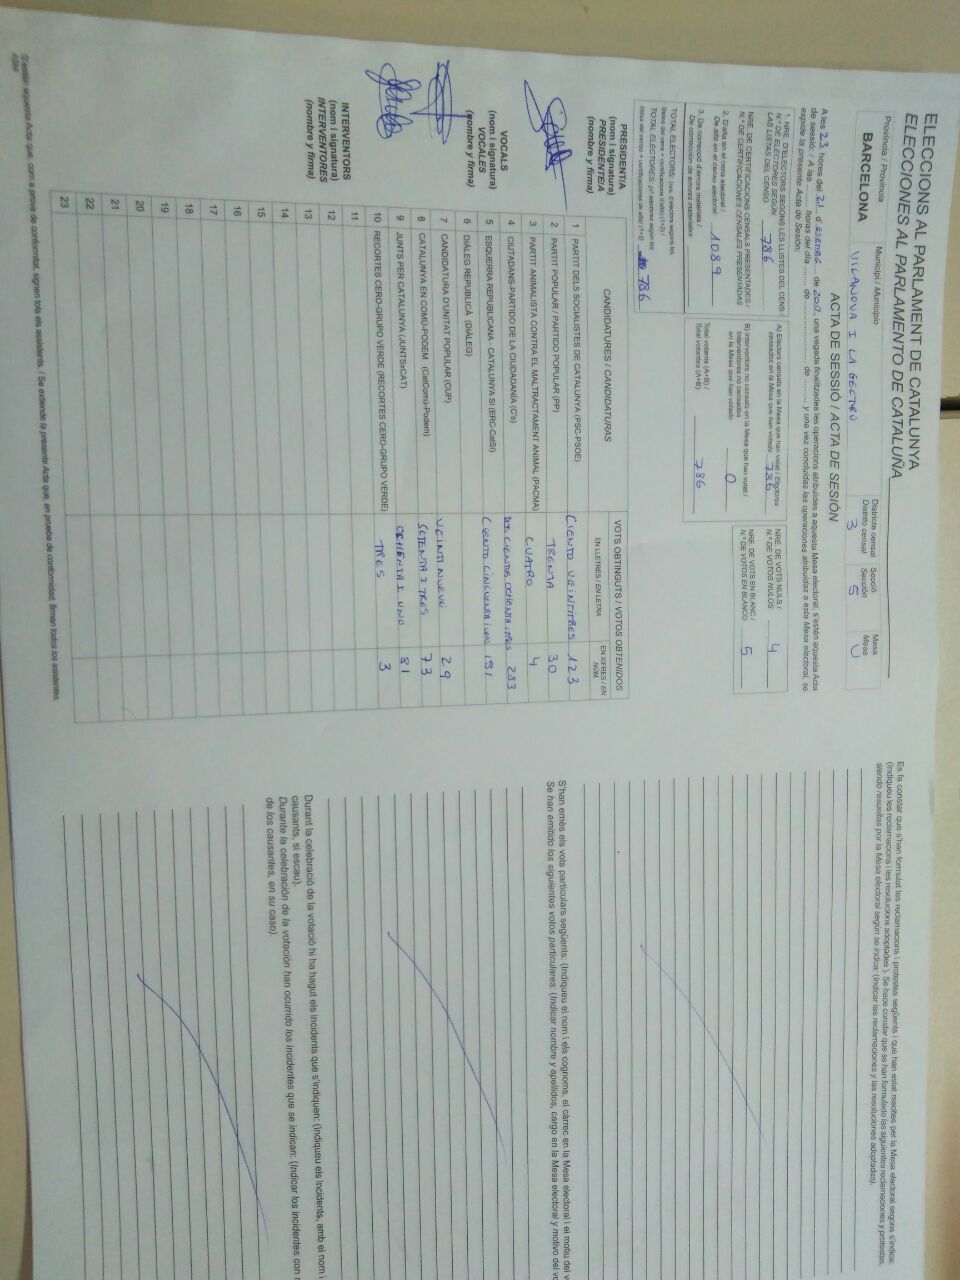 ELECCIONS AL PARLAMENT DE CATALUNYA
ELECCIONES AL PARLAMENTO DE CATALUÑA
Província / Provincia
BARCELONA
Municipi / Municipio
VILANOVA I LA GELTRÚ
Districte censal
Distrito censal
3
Secció
Sección
5
Mesa
Mesa
U
ACTA DE SESSIÓ / ACTA DE SESIÓN
A les 23 hores del 21 d de 2017, una vegada finalitzades les operacions atribuïdes a aquesta Mesa electoral, s'estén aquesta Acta
de sessió. / A las horas del día de de y una vez concluidas las operaciones atribuidas a esta Mesa electoral, se
expide la presente Acta de Sesión.
1. NRE. D'ELECTORS SEGONS LES LLISTES DEL CENS /
N.º DE ELECTORES SEGÚN
LAS LISTAS DEL CENSO
786
NRE. DE CERTIFICACIONS CENSALS PRESENTADES /
N.º DE CERTIFICACIONES CENSALES PRESENTADAS
2. D'alta en el cens electoral /
De alta en el censo electoral:
1089
3. De correcció d'errors materials /
De corrección de errores materiales:
TOTAL ELECTORS: (nre. d'electors segons les
llistes del cens + certificacions d'alta) (1+2) /
TOTAL ELECTORES: (nº electores según las
listas del censo + certificaciones de alta) (1+2)
786
A) Electors censats en la Mesa que han votat / Electores
censados en la Mesa que han votado
786
B) Interventors no censats en la Mesa que han votat /
Interventores no censados
en la Mesa que han votado
0
Total votants (A+B) /
Total votantes (A+B)
786
NRE. DE VOTS NULS /
N.º DE VOTOS NULOS
4
NRE. DE VOTS EN BLANC /
N.º DE VOTOS EN BLANCO
5
CANDIDATURES / CANDIDATURAS
VOTS OBTINGUTS / VOTOS OBTENIDOS
EN LLETRES / EN LETRA
EN XIFRES / EN NÚM.
1 PARTIT DELS SOCIALISTES DE CATALUNYA (PSC-PSOE) CIENTO VEINTITRES 123
2 PARTIT POPULAR / PARTIDO POPULAR (PP) TRENTA 30
3 PARTIT ANIMALISTA CONTRA EL MALTRACTAMENT ANIMAL (PACMA) CUATRO 4
4 CIUTADANS-PARTIDO DE LA CIUDADANÍA (C's) DOSCIENTOS OCHENTA I TRES 283
5 ESQUERRA REPUBLICANA - CATALUNYA SÍ (ERC-CatSí) CIENTO CINCUENTA I UNO 151
6 DIÀLEG REPUBLICÀ (DIÀLEG)
7 CANDIDATURA D'UNITAT POPULAR (CUP) VEINTINUEVE 29
8 CATALUNYA EN COMÚ-PODEM (CatComú-Podem) SETENTA I TRES 73
9 JUNTS PER CATALUNYA (JUNTSxCAT) OCHENTA I UNO 81
10 RECORTES CERO-GRUPO VERDE (RECORTES CERO-GRUPO VERDE) TRES 3
11
12
13
14
15
16
17
18
19
20
21
22
23
PRESIDENT/A
(nom i signatura)
PRESIDENTE/A
(nombre y firma)
VOCALS
(nom i signatura)
VOCALES
(nombre y firma)
INTERVENTORS
(nom i signatura)
INTERVENTORES
(nombre y firma)
S'estén aquesta Acta que, com a prova de conformitat, signen tots els assistents. / Se extiende la presente Acta que, en prueba de conformidad, firman todos los asistentes.
Es fa constar que s'han formulat les reclamacions i protestes següents i que han estat resoltes per la Mesa electoral segons s'indica:
(Indiqueu les reclamacions i les resolucions adoptades). Se hace constar que se han formulado las siguientes reclamaciones y protestas,
siendo resueltas por la Mesa electoral según se indica: (Indicar las reclamaciones y las resoluciones adoptadas).
S'han emès els vots particulars següents: (Indiqueu el nom i els cognoms, el càrrec en la Mesa electoral i el motiu del
Se han emitido los siguientes votos particulares: (Indicar nombre y apellidos, cargo en la Mesa electoral y motivo del
Durant la celebració de la votació hi ha hagut els incidents que s'indiquen: (Indiqueu els incidents, amb el nom i
causants, si escau).
Durante la celebración de la votación han ocurrido los incidentes que se indican: (Indicar los incidentes con
de los causantes, en su caso).